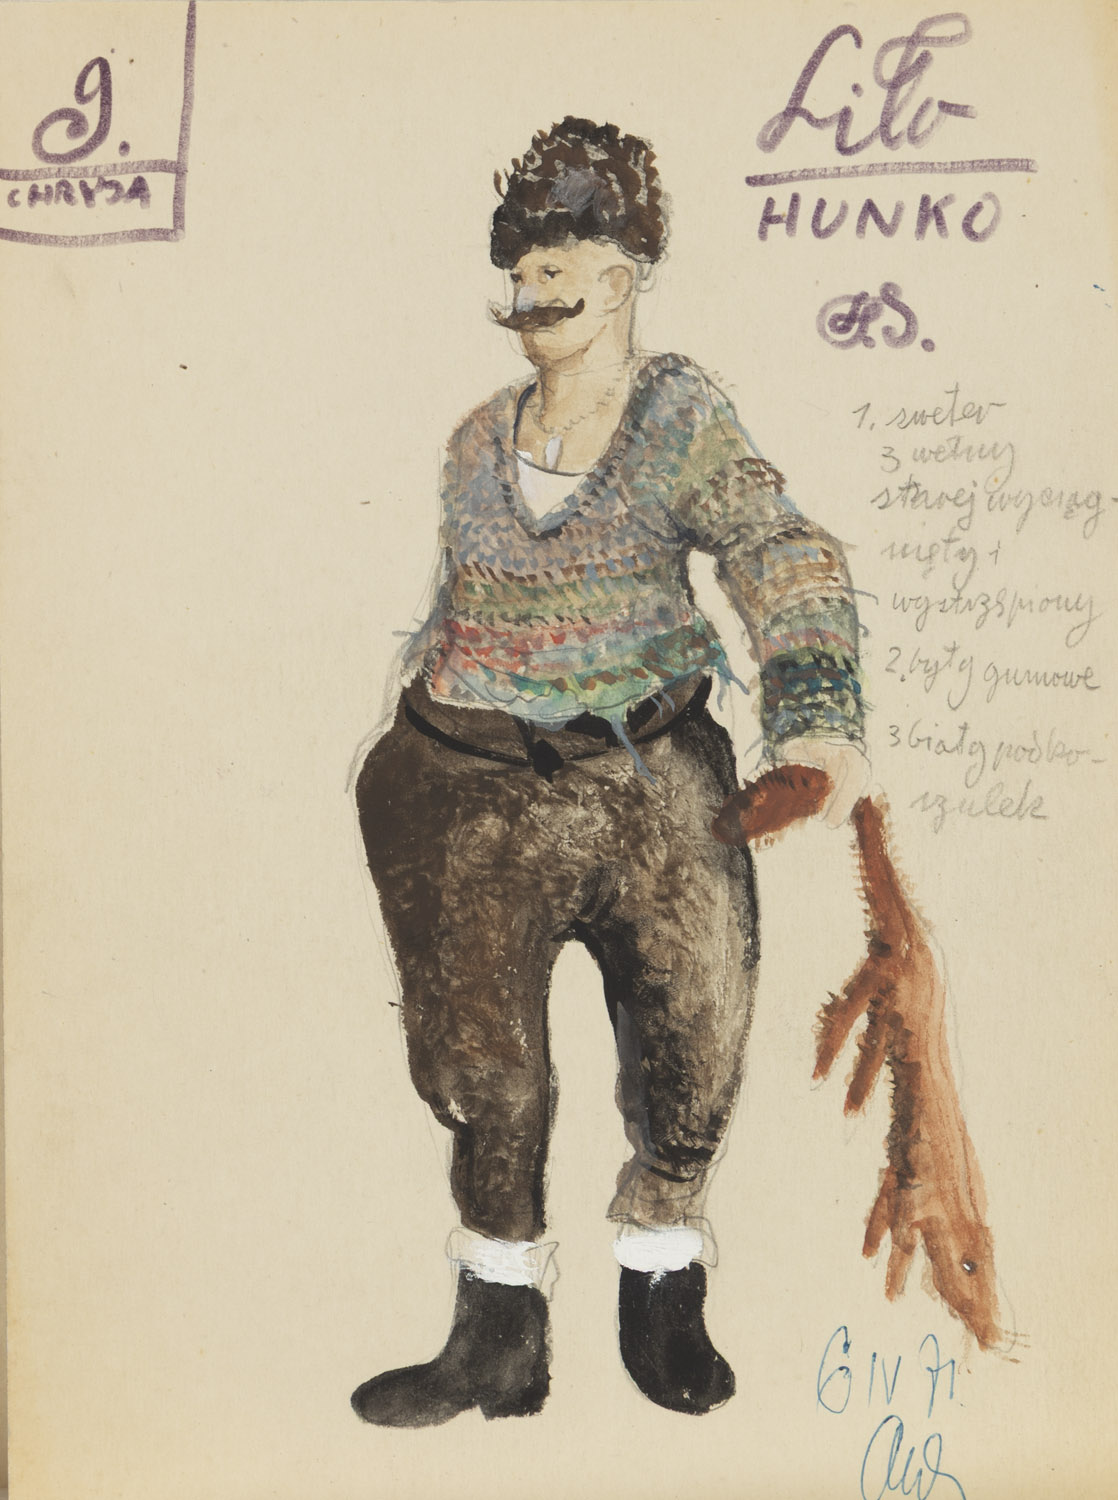 9.
CHRYSA
Liło
HUNKO
1. sweter
z wełny
starej wyciąg-
nięty i
wystrzępiony
2. buty gumowe
3 biały podko-
szulek
6 IV 71